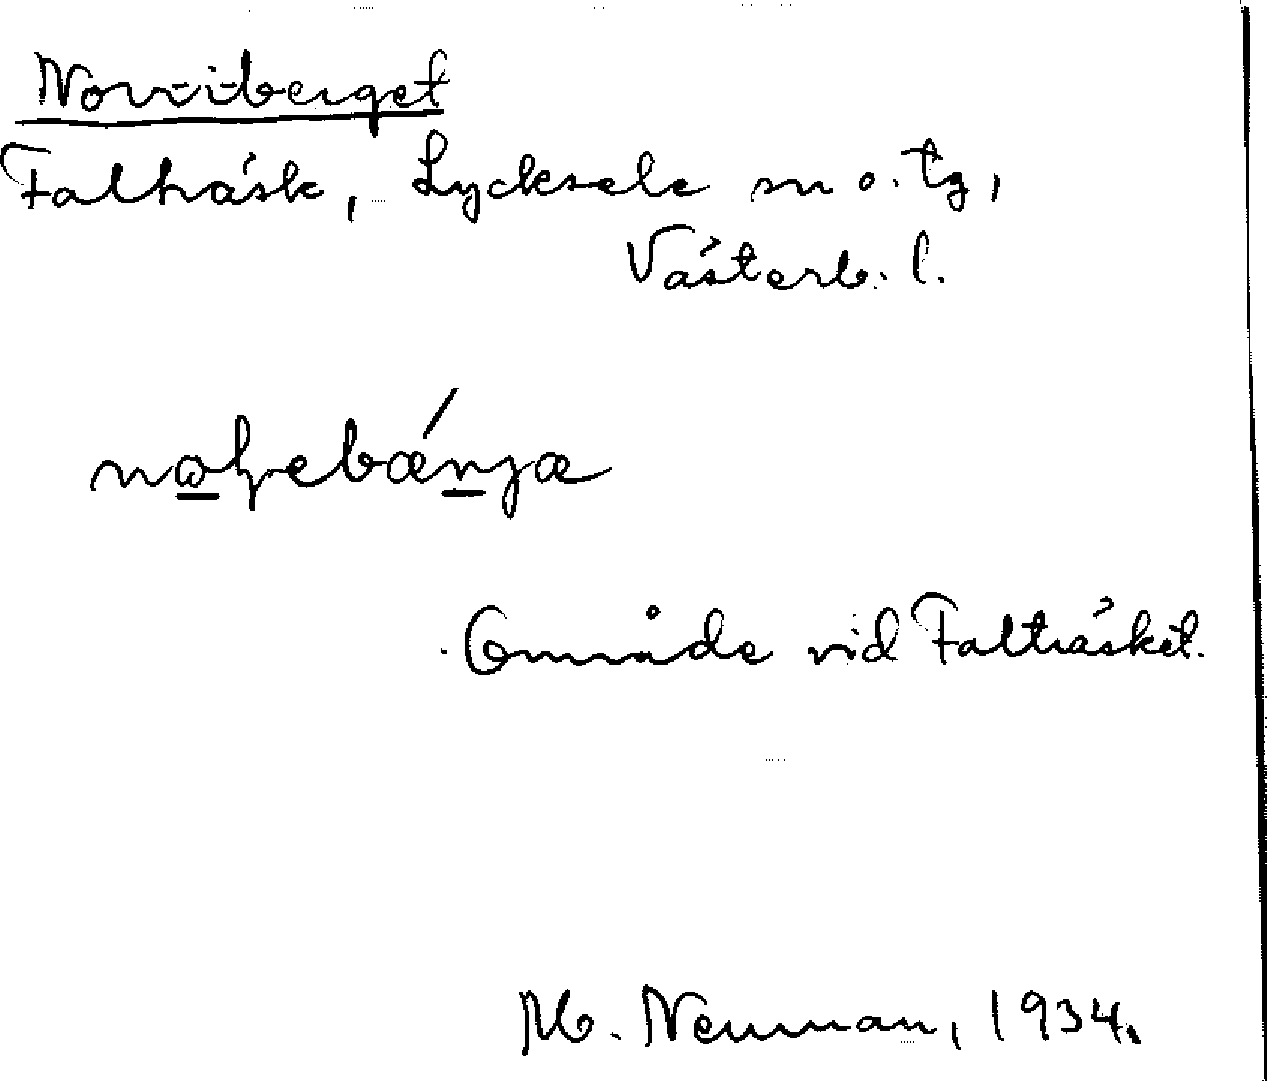 Norr-i-berget
Falträsk, Lycksele sn o. tg,
Västerb. l.
Område vid Falträsket.
M. Neuman, 1934.